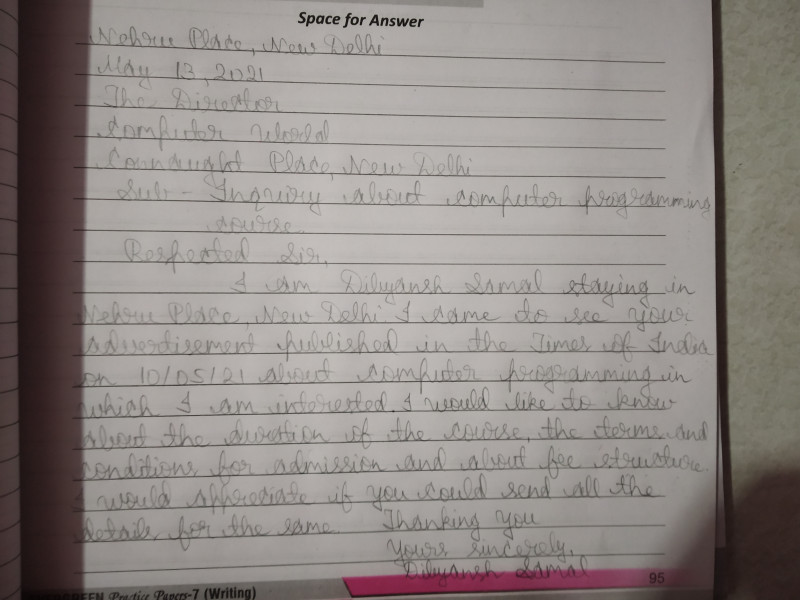 Space for Answer
Nehru Place, New Delhi
May 13, 2021
The Director
Computer World
Connaught Place, New Delhi
Sub - Inquiry about computer programming
course.
Respected Sir,
I am Dibyansh Samal staying in
Nehru Place, New Delhi. I came to see your
advertisement published in the Times of India
on 10/05/21 about computer programming in
which I am interested. I would like to know
about the duration of the course, the terms and
conditions for admission and about fee structure.
I would appreciate if you could send all the
details for the same. Thanking you
Yours sincerely,
Dibyansh Samal
Practice Papers-7 (Writing)
95